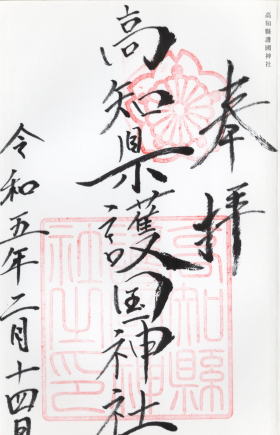 高知縣護國神社
奉拝
高知県護国神社
令和五年二月十四日
高知縣護國神社之印